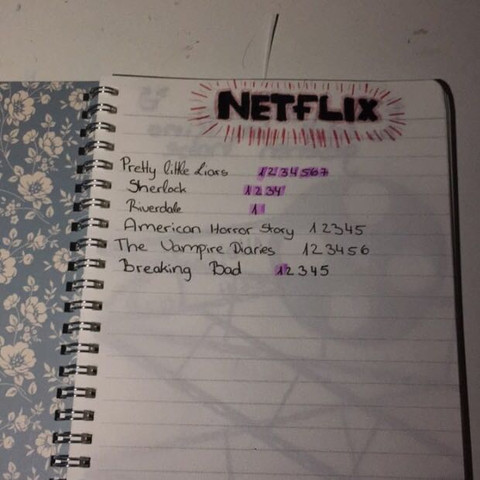 NETFLIX
Pretty little Liars 1234567
Sherlock 1234
Riverdale 1
American Horror Story 12345
The Vampire Diaries 123456
Breaking Bad 12345